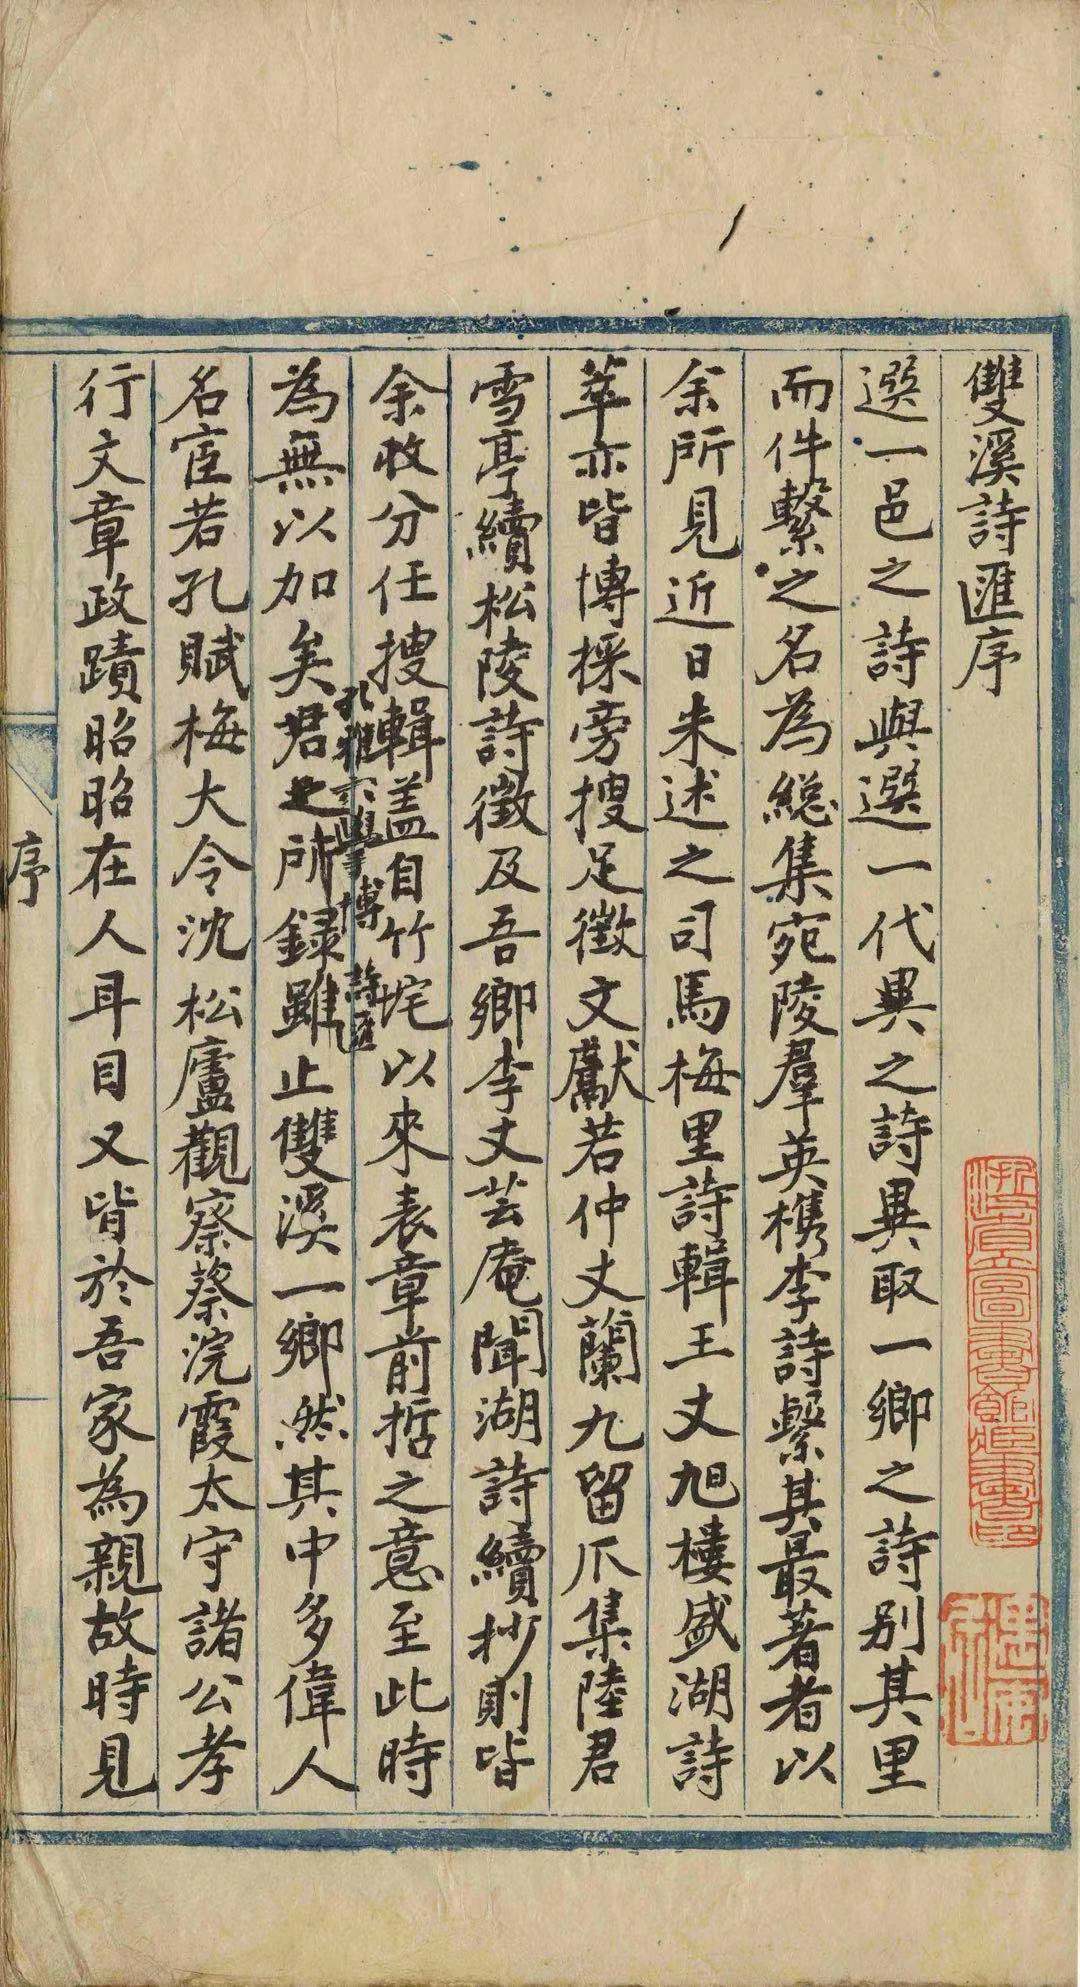 雙溪詩匯序
選一邑之詩與選一代異之詩異取一鄉之詩別其里
而件繫之名為總集宛陵羣英檇李詩繫其最著者以
余所見近日朱述之司馬梅里詩輯王丈旭樓盛湖詩
萃亦皆博採旁搜足徵文獻若仲丈蘭九留爪集陸君
雪亭續松陵詩徵及吾鄉李丈芸庵聞湖詩續抄則皆
余收分任搜輯蓋自竹垞以來表章前哲之意至此時
為無以加矣君之所錄雖止雙溪一鄉然其中多偉人
孔雅六與 博 詩匯
名宦若孔賦梅大令沈松廬觀察蔡浣霞太守諸公孝
行文章政蹟昭昭在人耳目又皆於吾家為親故時見
序
浙江省立圖書館藏書印